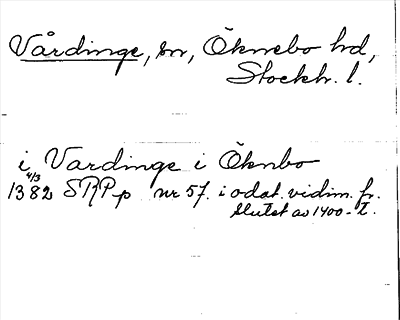 Vårdinge, sn, Öknebo hd,
Stockh. l.
i Vardinge i Öknbo
1382 4/3 SRPp nr 57. i odat. vidim. fr.
slutet av 1400-t.